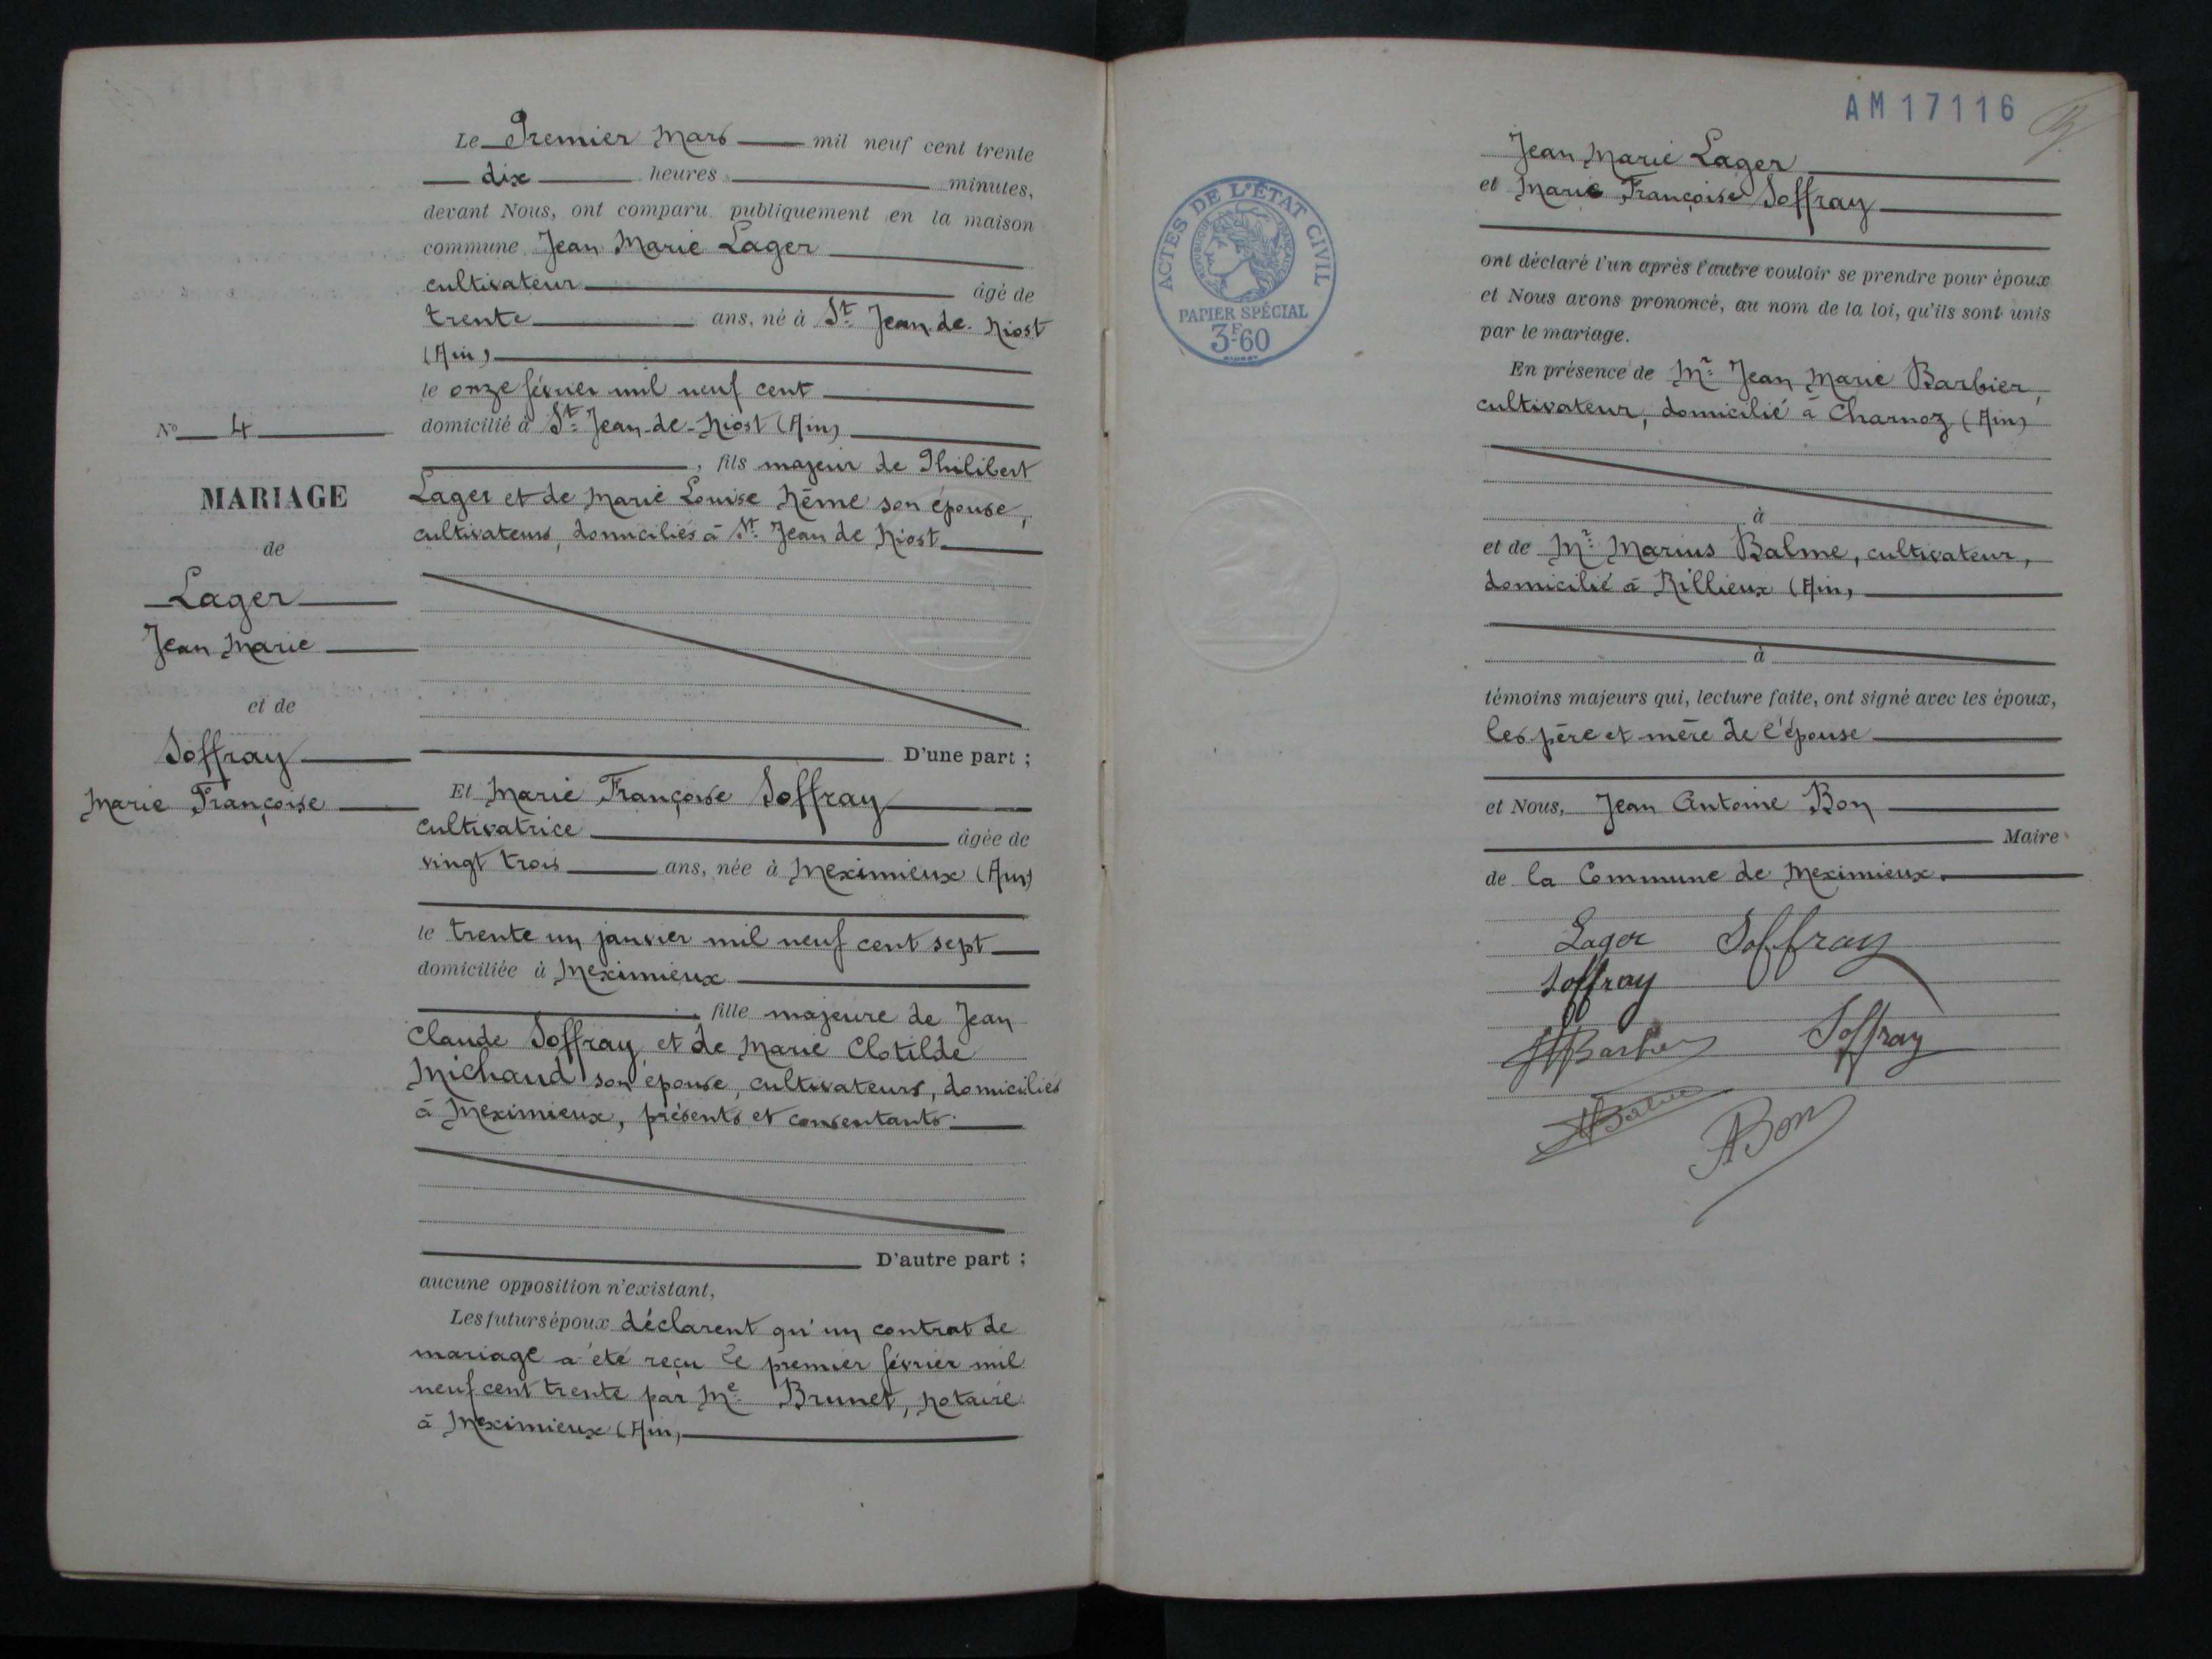 Le Premier Mars mil neuf cent trente
dix heures minutes,
devant Nous, ont comparu publiquement en la maison
commune Jean Marie Lager
cultivateur âgé de
trente ans, né à St Jean-de-Niost
(Ain)
le onze février mil neuf cent
domicilié à St Jean-de-Niost (Ain)
, fils majeur de Philibert
Lager et de Marie Louise Nême son épouse,
cultivateurs, domiciliés à St Jean de Niost
D'une part ;
N° 4
MARIAGE
de
Lager
Jean Marie
et de
Soffray
Marie Françoise
Et Marie Françoise Soffray
cultivatrice âgée de
vingt trois ans, née à Meximieux (Ain)
le trente un janvier mil neuf cent sept
domiciliée à Meximieux
fille majeure de Jean
Claude Soffray et de Marie Clotilde
Michaud son épouse, cultivateurs, domiciliés
à Meximieux, présents et consentants.
D'autre part ;
aucune opposition n'existant,
Les futurs époux déclarent qu'un contrat de
mariage a été reçu le premier février mil
neuf cent trente par Me Brunet, notaire
à Meximieux (Ain)
AM17116
Jean Marie Lager
et Marie Françoise Soffray
ont déclaré l'un après l'autre vouloir se prendre pour époux
et Nous avons prononcé, au nom de la loi, qu'ils sont unis
par le mariage.
En présence de Mr Jean Marie Barbier,
cultivateur, domicilié à Charnoz (Ain)
à
et de Mr Marius Balme, cultivateur,
domicilié à Rillieux (Ain)
à
témoins majeurs qui, lecture faite, ont signé avec les époux,
les père et mère de l'épouse
et Nous, Jean Antoine Bon
Maire
de la Commune de Meximieux.
Lager Soffray
Soffray
JMBarbier Soffray
MBalme
ABon
ACTES DE L'ÉTAT CIVIL
RÉPUBLIQUE FRANÇAISE
PAPIER SPÉCIAL
3F60